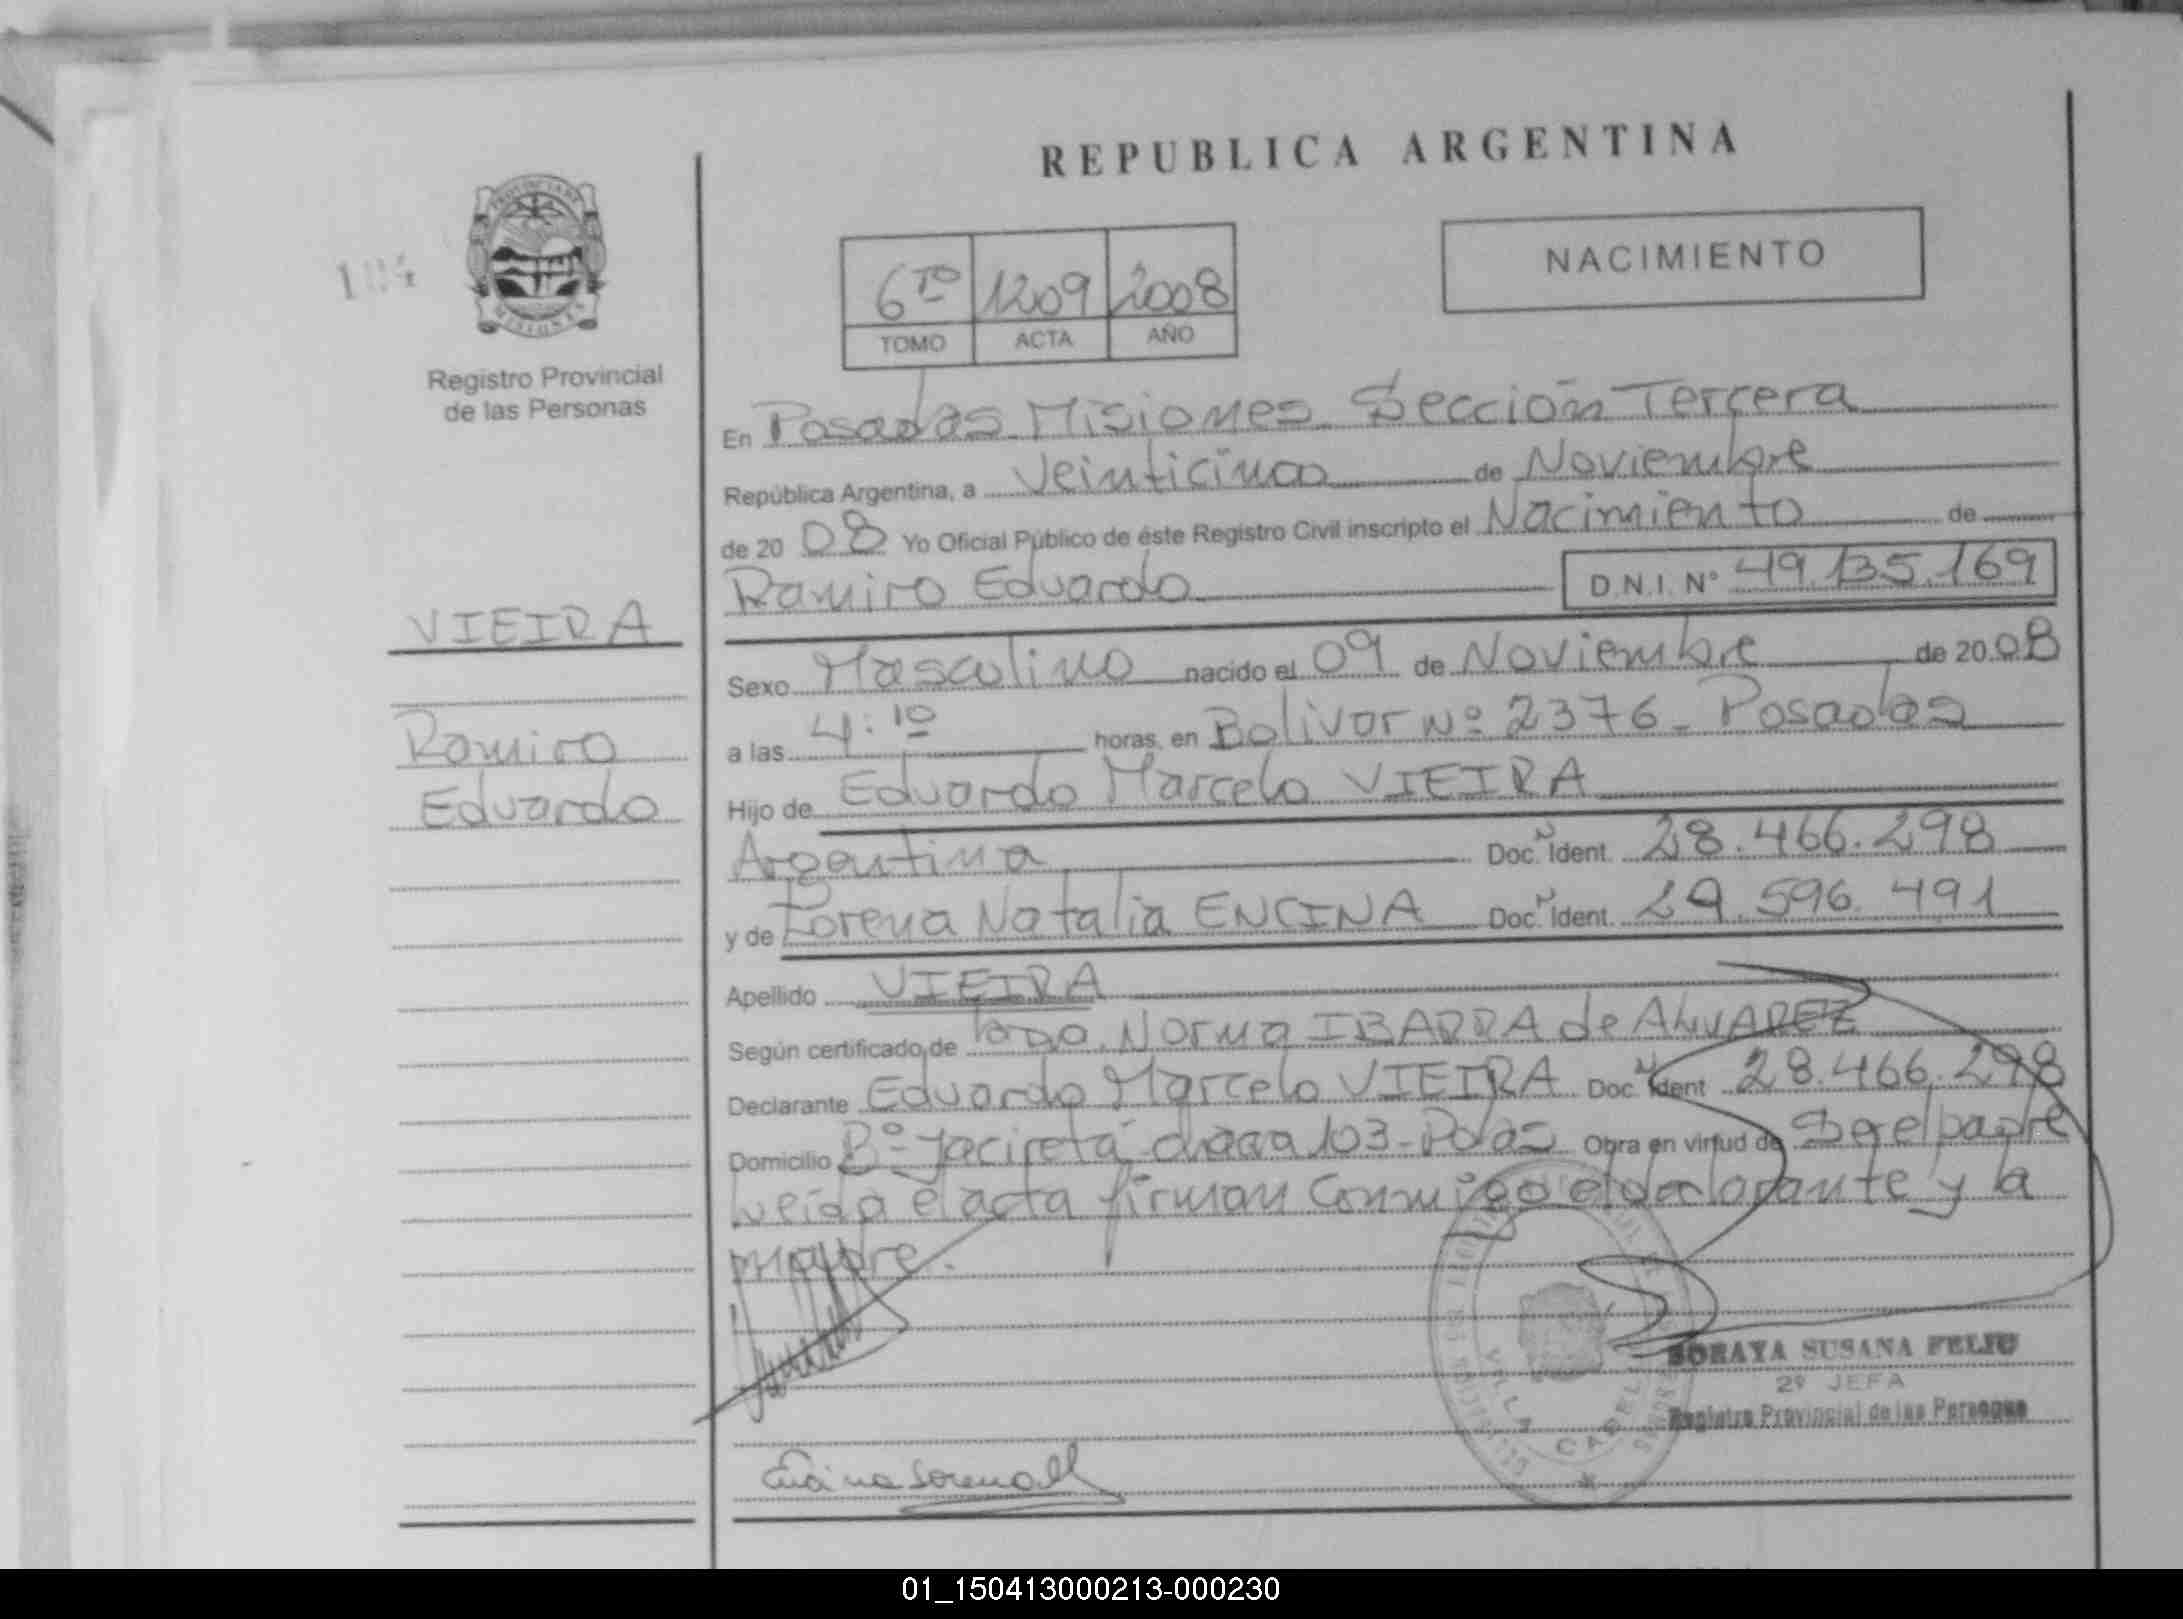 REPUBLICA ARGENTINA
184
PROVINCIA DE
MISIONES
Registro Provincial
de las Personas
NACIMIENTO
6TO 1209 2008
TOMO ACTA AÑO
En Posadas Misiones Sección Tercera
República Argentina, a Veinticinco de Noviembre
de 20 08 Yo Oficial Público de éste Registro Civil inscripto el Nacimiento de
Ramiro Eduardo D.N.I. N° 49.135.169
VIEIRA
Ramiro
Eduardo
Sexo Masculino nacido el 09 de Noviembre de 20 08
a las 4:10 horas, en Bolivar Nº 2376 - Posadas
Hijo de Eduardo Marcelo VIEIRA
Argentina Doc. Ident. 28.466.298
y de Lorena Natalia ENCINA Doc. Ident. 29.596.491
Apellido VIEIRA
Según certificado de Norma IBARRA de ALVAREZ
Declarante Eduardo Marcelo VIEIRA Doc. Ident 28.466.298
Domicilio Bº Yacireta chacra 103 - Pdas Obra en virtud de Ser el padre
Leída el acta firman conmigo el declarante y la
madre.
SORAYA SUSANA FELIU
2º JEFA
Registro Provincial de las Personas
Encina Lorena N
01_150413000213-000230